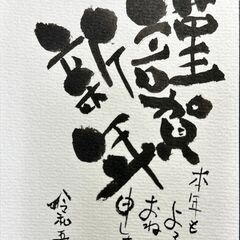 謹賀
新年
本年も
よろ
おね
申し
令和五